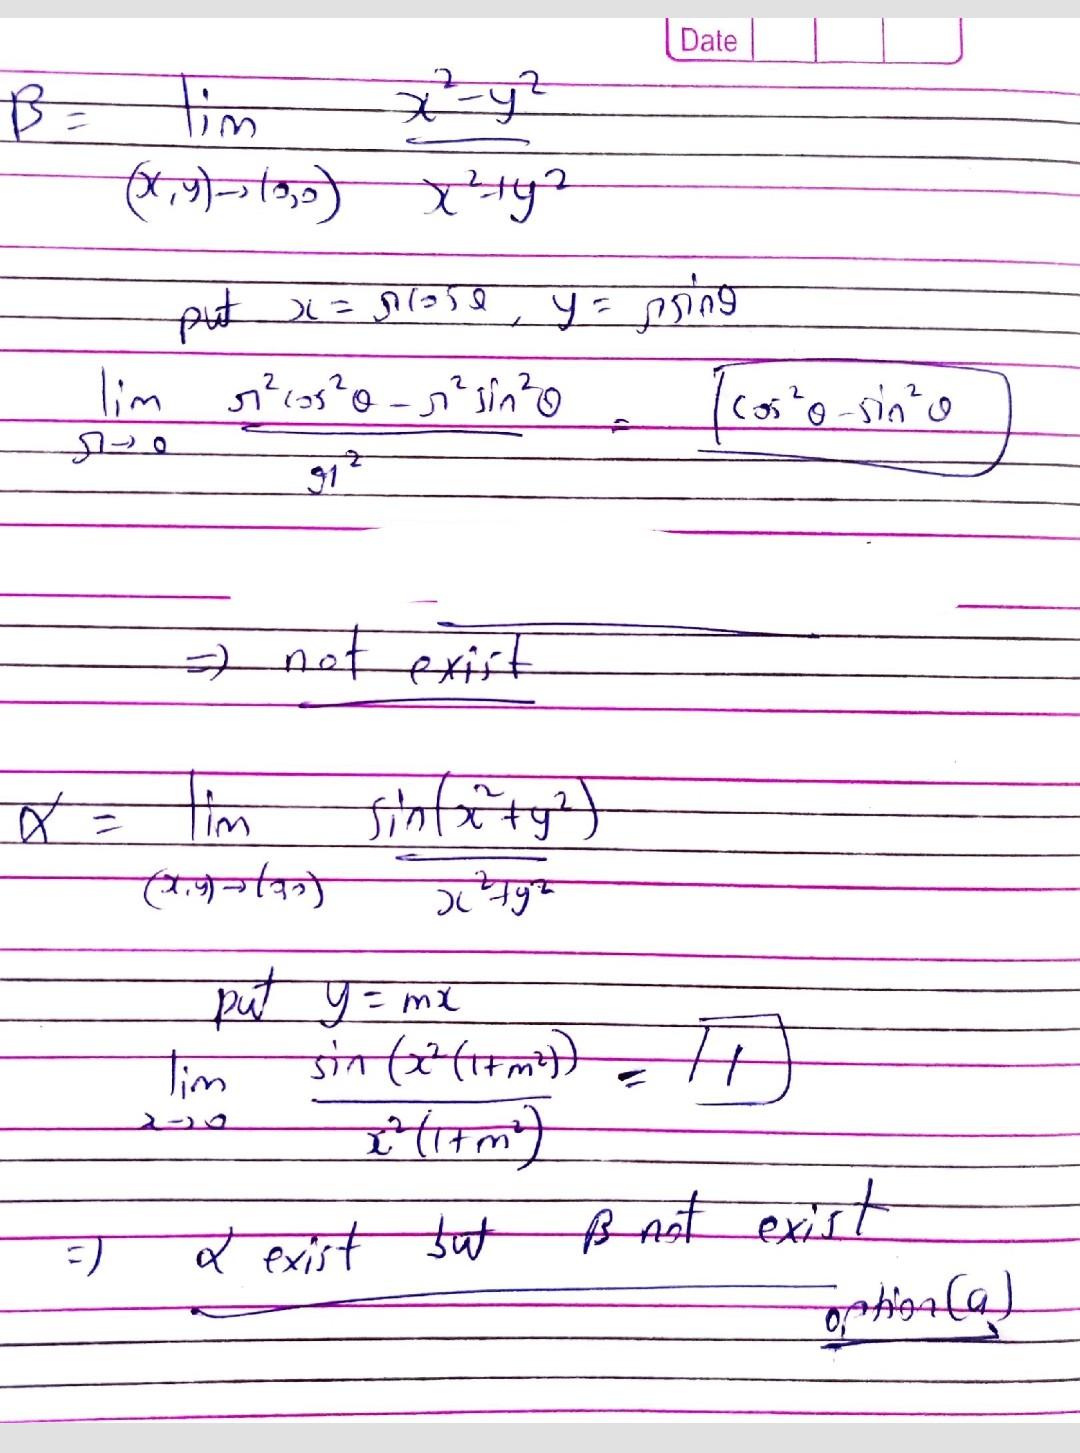 Date
β = lim x²-y²
(x,y)→(0,0) x²+y²
put x = rcosθ, y = rsinθ
lim r²cos²θ - r²sin²θ = cos²θ - sin²θ
r→0 r²
=) not exist
α = lim sin(x²+y²)
(x,y)→(0,0) x²+y²
put y = mx
lim sin (x²(1+m²)) = 1
x→0 x²(1+m²)
=) α exist but β not exist
option (a)